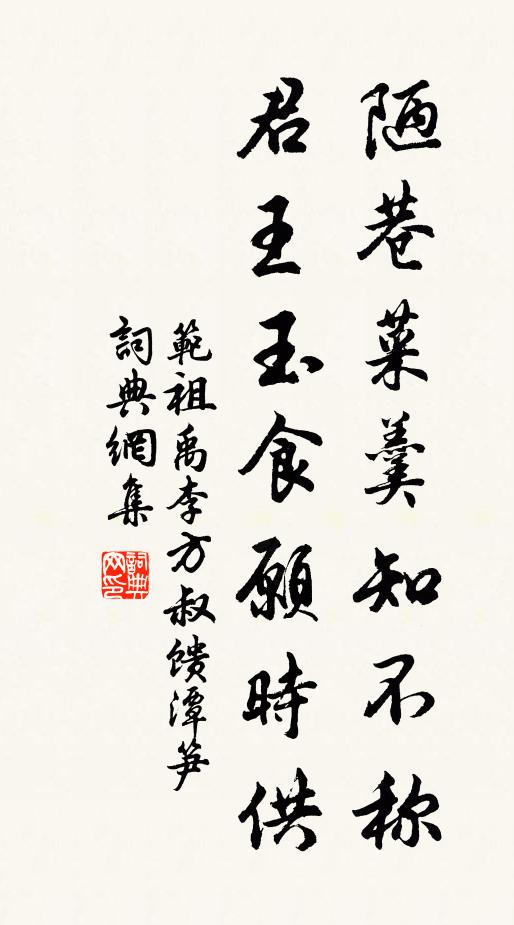 陋巷菜羹知不称
君王玉食願時供
範祖禹李方叔馈潭笋
詞典網集
詞典網印